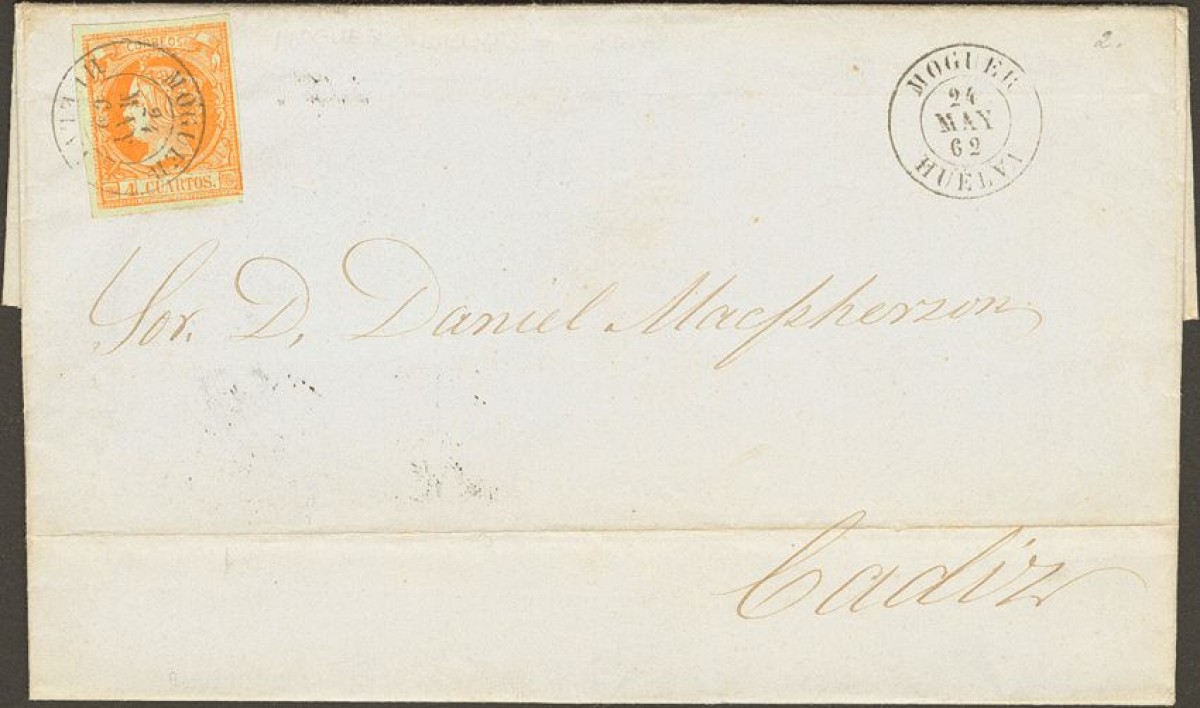 CORREOS
4 CUARTOS.
MOGUER
24
MAY
62
HUELVA
2.
MOGUER
24
MAY
62
HUELVA
Sor. D. Daniel Macpherson
Cadiz